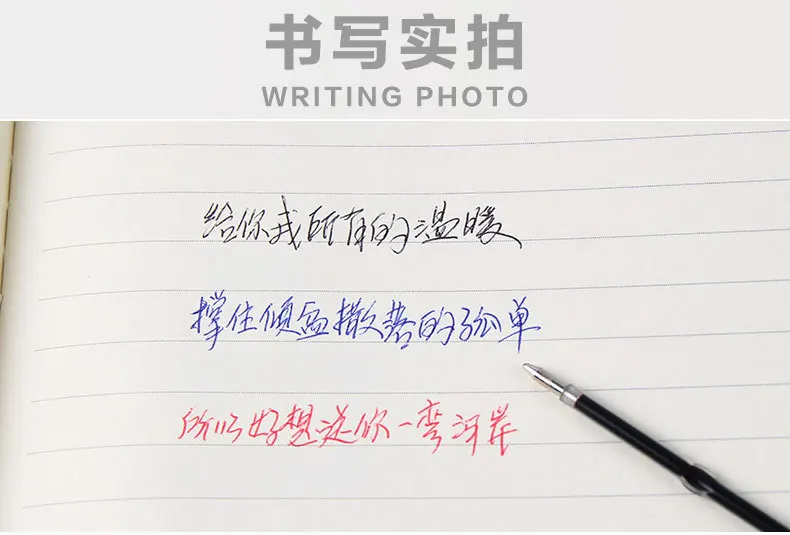 书写实拍
WRITING PHOTO
给你我所有的温暖
撑住倾盆撒落的孤单
所以好想送你一弯河岸